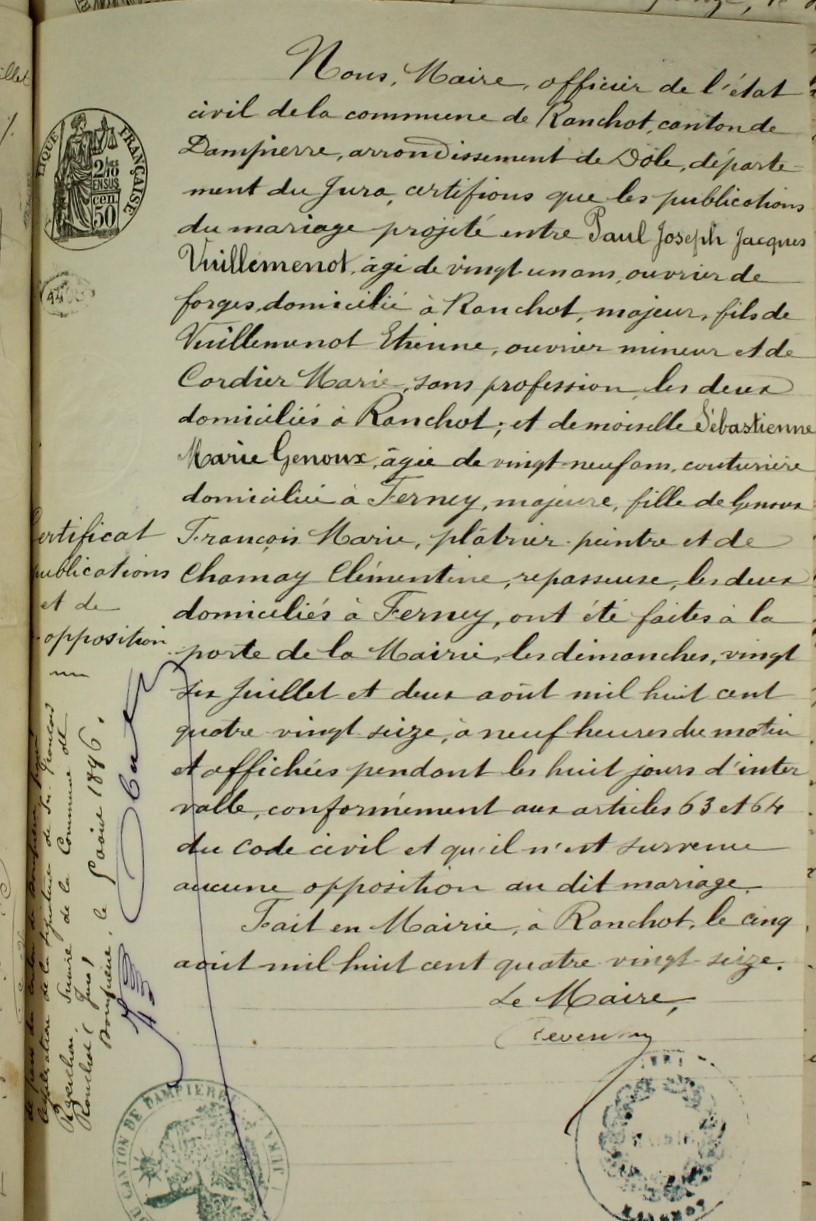 Nous, Maire, officier de l'état
civil de la commune de Ranchot, canton de
Dampierre, arrondissement de Dôle, départe-
ment du Jura, certifions que les publications
du mariage projeté entre Paul Joseph Jacques
Vuillemenot, âgé de vingt-un ans, ouvrier de
forges, domicilié à Ranchot, majeur, fils de
Vuillemenot Etienne, ouvrier mineur et de
Cordier Marie, sans profession, les deux
domiciliés à Ranchot; et demoiselle Sébastienne
Marie Genoux, âgée de vingt-neuf ans, couturière
domiciliée à Ferney, majeure, fille de Genoux
François Marie, plâtrier-peintre et de
Chamay Clémentine, repasseuse, les deux
domiciliés à Ferney, ont été faites à la
porte de la Mairie, les dimanches, vingt
six Juillet et deux août mil huit cent
quatre-vingt-seize, à neuf heures du matin
et affichées pendant les huit jours d'inter
valle, conformément aux articles 63 et 64
du code civil et qu'il n'est survenu
aucune opposition au dit mariage.
Fait en Mairie, à Ranchot, le cinq
août mil huit cent quatre-vingt-seize.
Le Maire,
IQUE FRANÇAISE
2/10
EN SUS
50 cen.
ertificat
publications
et de
opposition
de la signature de
Maire de la Commune de
Ranchot (Jura)
le 5 août 1896.
DU CANTON DE DAMPIERRE
JURA
RANCHOT